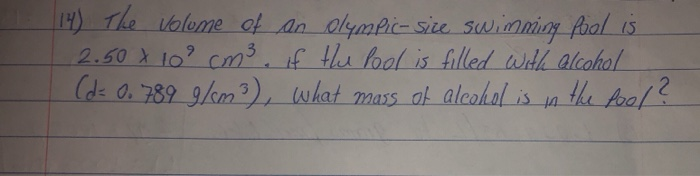 14) The volume of an olympic-size swimming pool is
2.50 x 10⁹ cm³. if the pool is filled with alcohol
(d= 0.789 g/cm³), what mass of alcohol is in the pool?